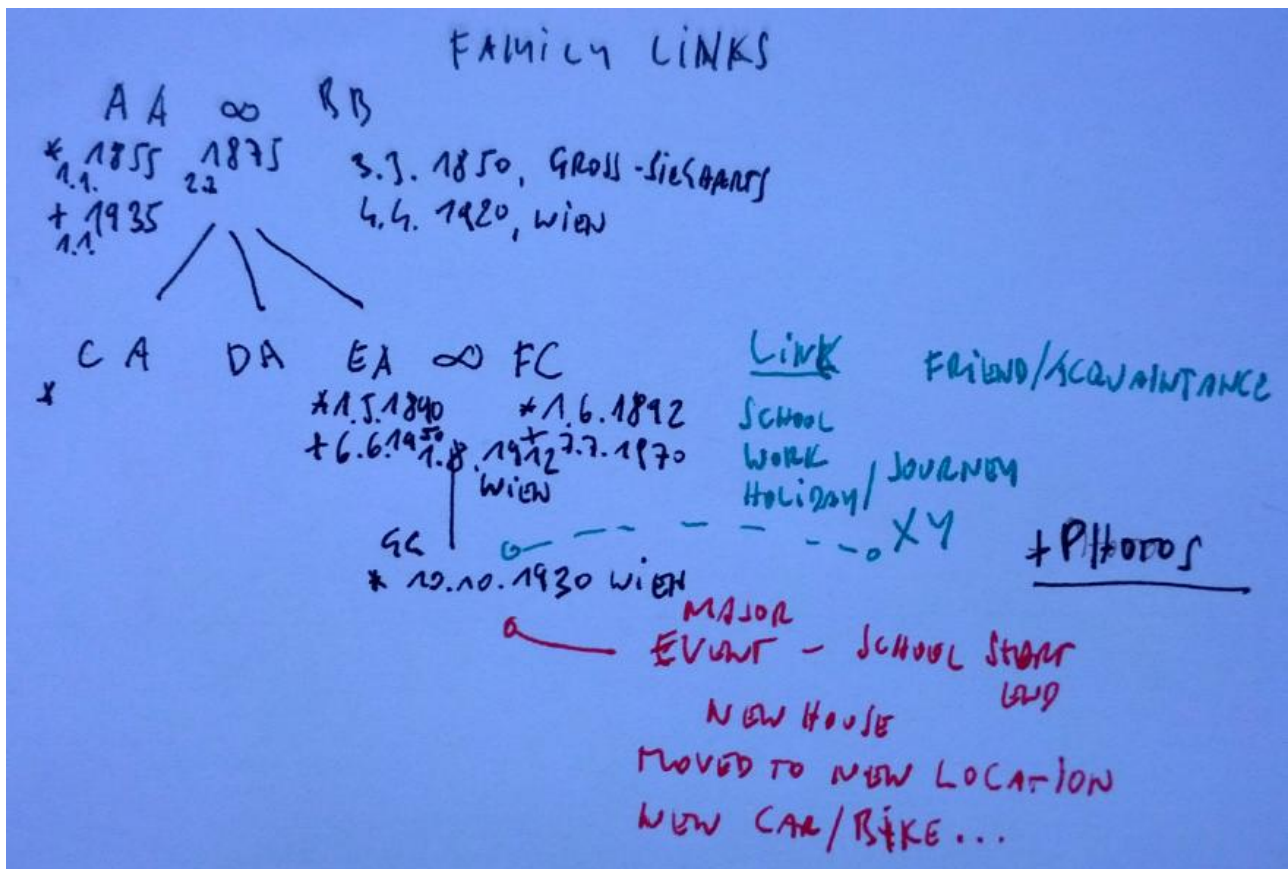 FAMILY LINKS
AA ∞ BB
* 1855 1875 3.3. 1850, GROSS-SIEGHARTS
1.1. 2.2
+ 1935 4.4. 1920, WIEN
1.1.
CA DA EA ∞ FC
*
*1.5.1890 *1.6.1892
+6.6.1950 + 7.7.1970
1.8.1912
WIEN
GG
* 10.10.1930 WIEN
LINK FRIEND/ACQUAINTANCE
SCHOOL
WORK
HOLIDAY/JOURNEY
XY
+PHOTOS
MAJOR
EVENT – SCHOOL START
END
NEW HOUSE
MOVED TO NEW LOCATION
NEW CAR/BIKE...